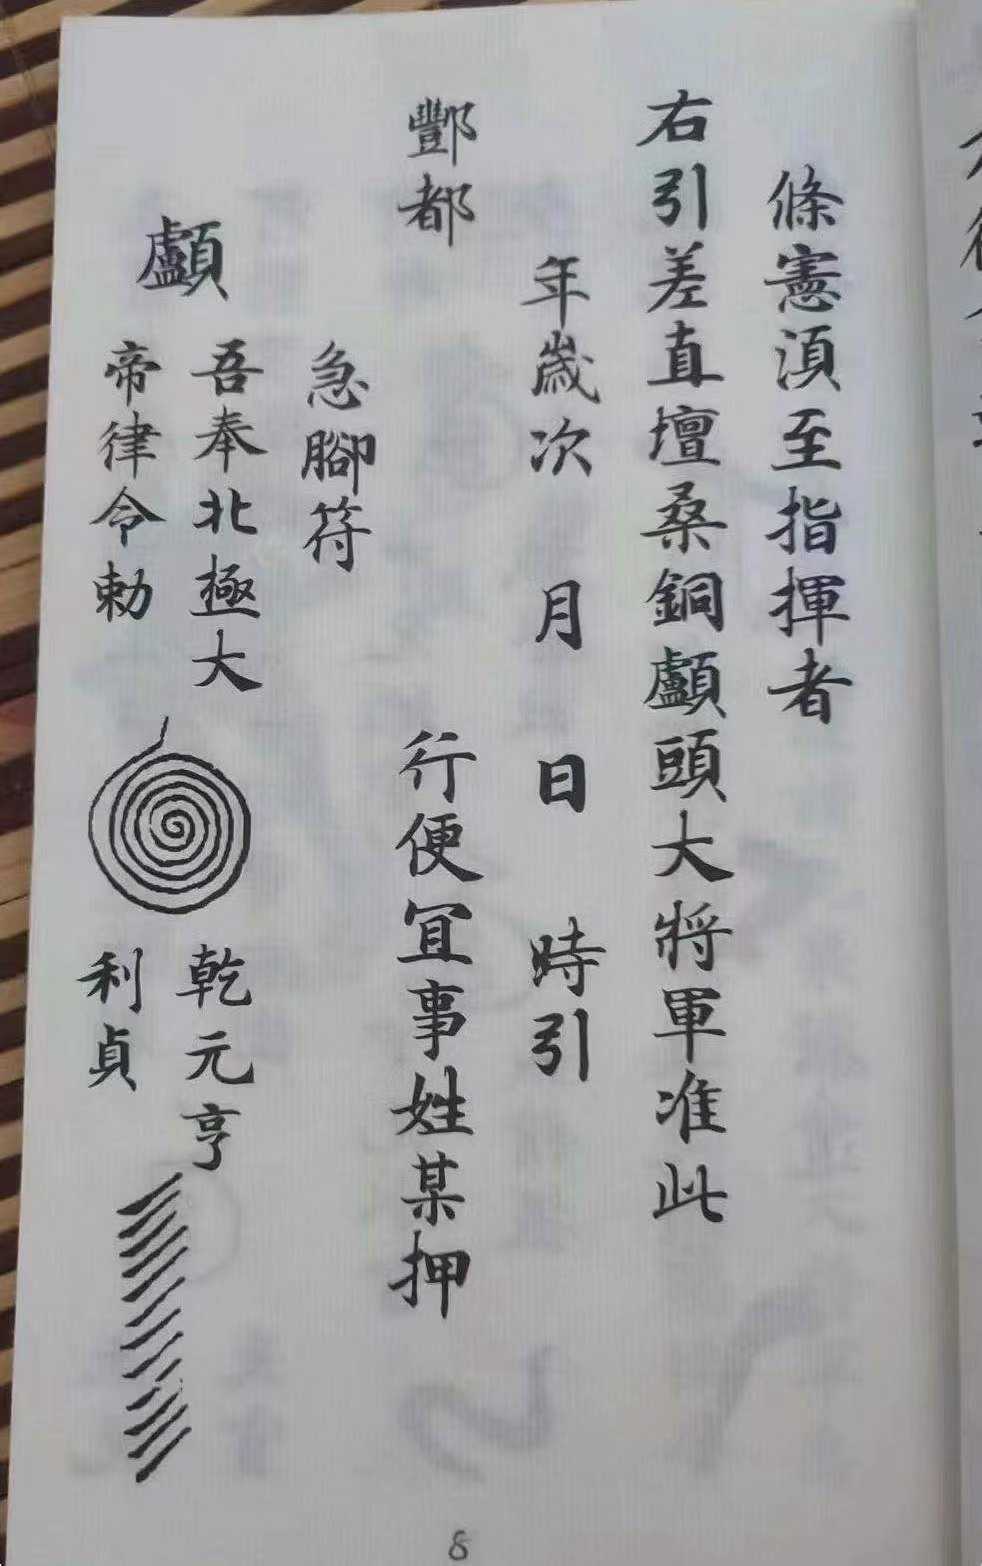 條憲湏至指揮者
右引差直壇桑銅顱頭大將軍准此
年歲次 月 日 時引
酆都 行便宜事姓某押
急腳符
吾奉北極大
帝律令勅
顱
乾元亨
利貞
8